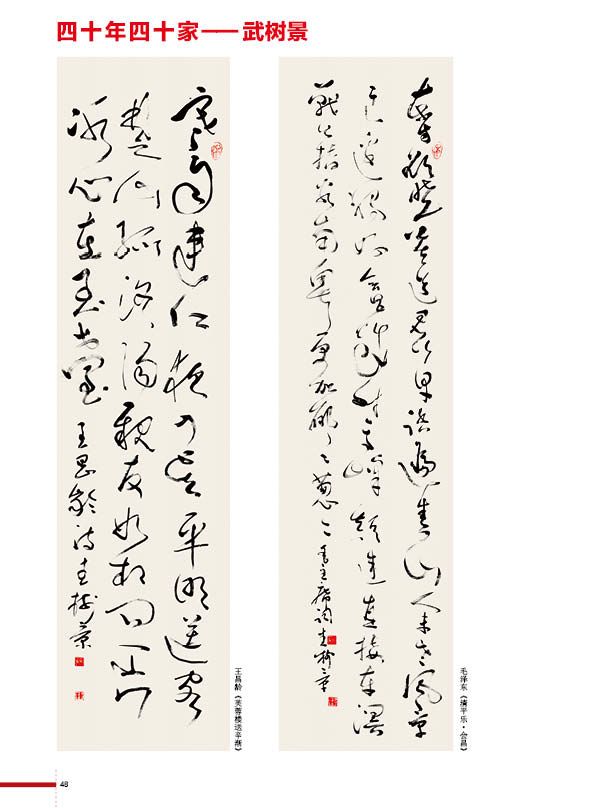 四十年四十家——武树景
东方欲晓莫道君行早踏遍青山人未老风景
这边独好会昌城外高峰颠连直接东溟
战士指看南粤更加郁々葱々毛主席词武树景
毛泽东《清平乐·会昌》
寒雨连江夜入吴平明送客
楚山孤洛阳亲友如相问一片
冰心在玉壶王昌龄诗武树景
王昌龄《芙蓉楼送辛渐》
48